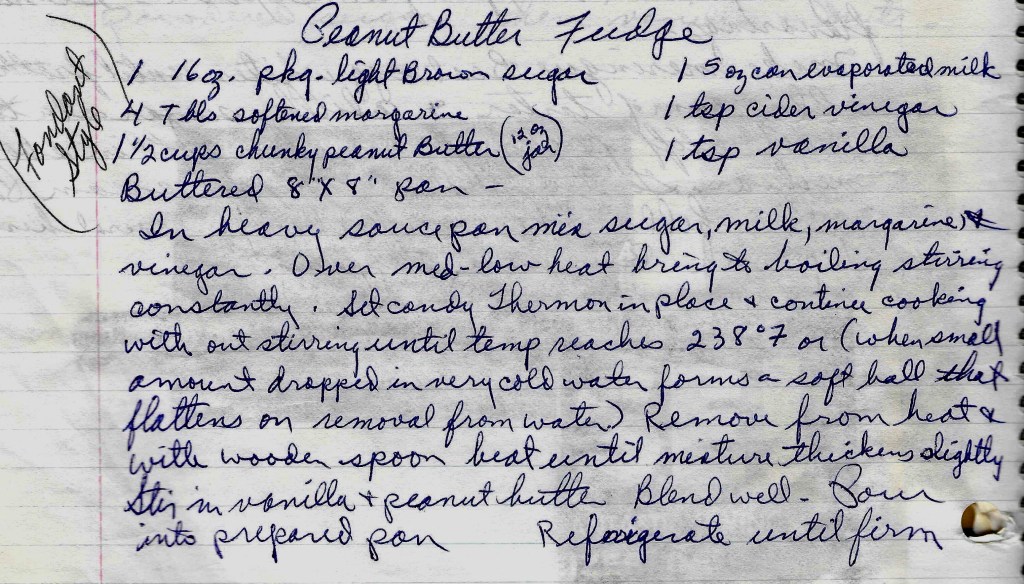 Peanut Butter Fudge
(Fondant Style)
1 16oz. pkg. light Brown sugar 1 5 oz can evaporated milk
4 Tbls softened margarine 1 tsp cider vinegar
1 1/2 cups chunky peanut Butter (12 oz jar) 1 tsp vanilla
Buttered 8" X 8" pan -
In heavy saucepan mix sugar, milk, margarine, &
vinegar. Over med-low heat bring to boiling stirring
constantly. Set candy Thermon in place & continue cooking
with out stirring until temp reaches 238°F or (when small
amount dropped in very cold water forms a soft ball that
flattens on removal from water.) Remove from heat &
with wooden spoon beat until mixture thickens slightly
Stir in vanilla + peanut butter Blend well - Pour
into prepared pan Refrigerate until firm